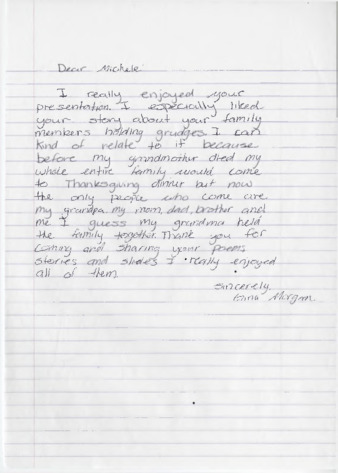 Dear Michele
I really enjoyed your
presentation. I especially liked
your story about your family
members holding grudges. I can
kind of relate to it because
before my grandmother died my
whole entire family would come
to Thanksgiving dinner but now
the only people who come are
my grandpa my mom, dad, brother and
me I guess my grandma held
the family together. Thank you for
coming and sharing your poems
stories and slides I really enjoyed
all of them.
Sincerely
Morgan